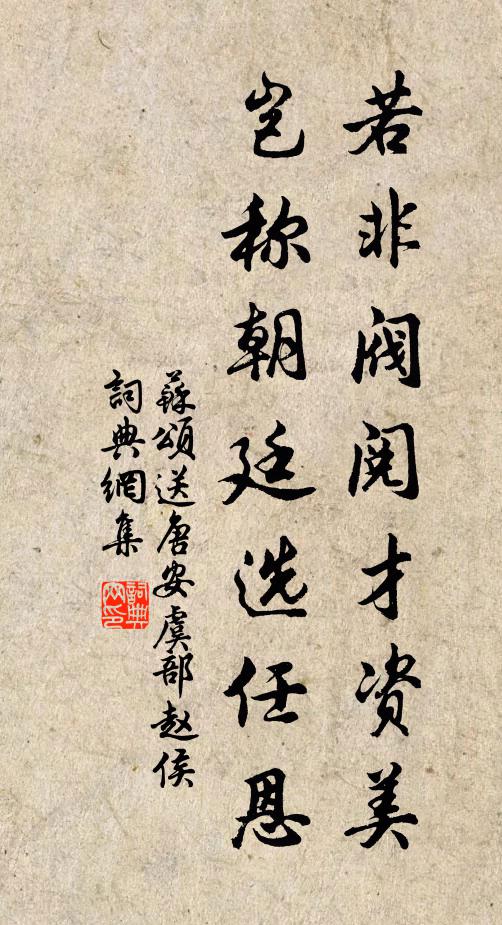 若非阀阅才资美
岂称朝廷选任恩
蘇頌送唐安虞部赵侯
詞典網集
詞典网印